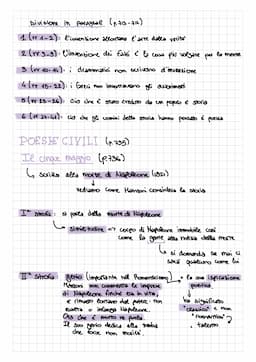 Divisione in paragrafi (p.713-714)
1 (rr 1-2): l'invenzione allontana l'arte dalla verità
2 (rr 3-9): l'invenzione dei fatti è la cosa più volgare per la mente
3 (rr 10-14): i drammatici non scrivono d'invenzione
4 (rr 15-21): i poeti non inventarono gli avvenimenti
5 (rr 22-24): ciò che è stato creduto da un popolo è storia
6 (rr 25-41): ciò che gli uomini della storia hanno pensato è poesia
POESIE CIVILI (p.735)
Il cinque maggio (p.736)
↳ scritta alla morte di Napoleone (1821)
↳ vediamo come Manzoni considera la storia
Iª strofa: si parla della morte di Napoleone
↳ similitudine → corpo di Napoleone immobile così
come la gente alla notizia della morte
↳ si domanda se mai ci
sarà qualcuno come lui
IIª strofa: genio (importante nel Romanticismo)
Manzoni non commenta le imprese
di Napoleone finché era in vita,
e rimasto lontano dal potere non
esalta o infanga Napoleone.
Ora che è morto ne parla.
Il suo genio dedica alla storia
una voce non vacua.
è la sua ispirazione
poetica
↳ significato
"classico" e non
"romantico"
↳ talento